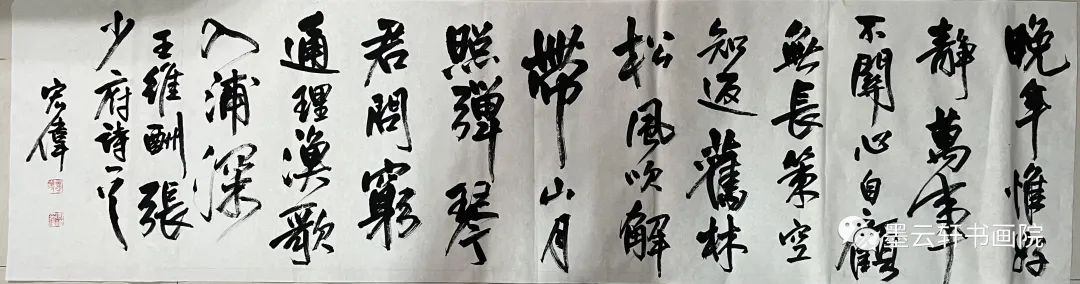 晚年惟好
靜萬事
不關心自顧
無長策空
知返舊林
松風吹解
帶山月
照彈琴
君問窮
通理漁歌
入浦深
王維酬張
少府詩一首
宏偉
墨云轩书画院